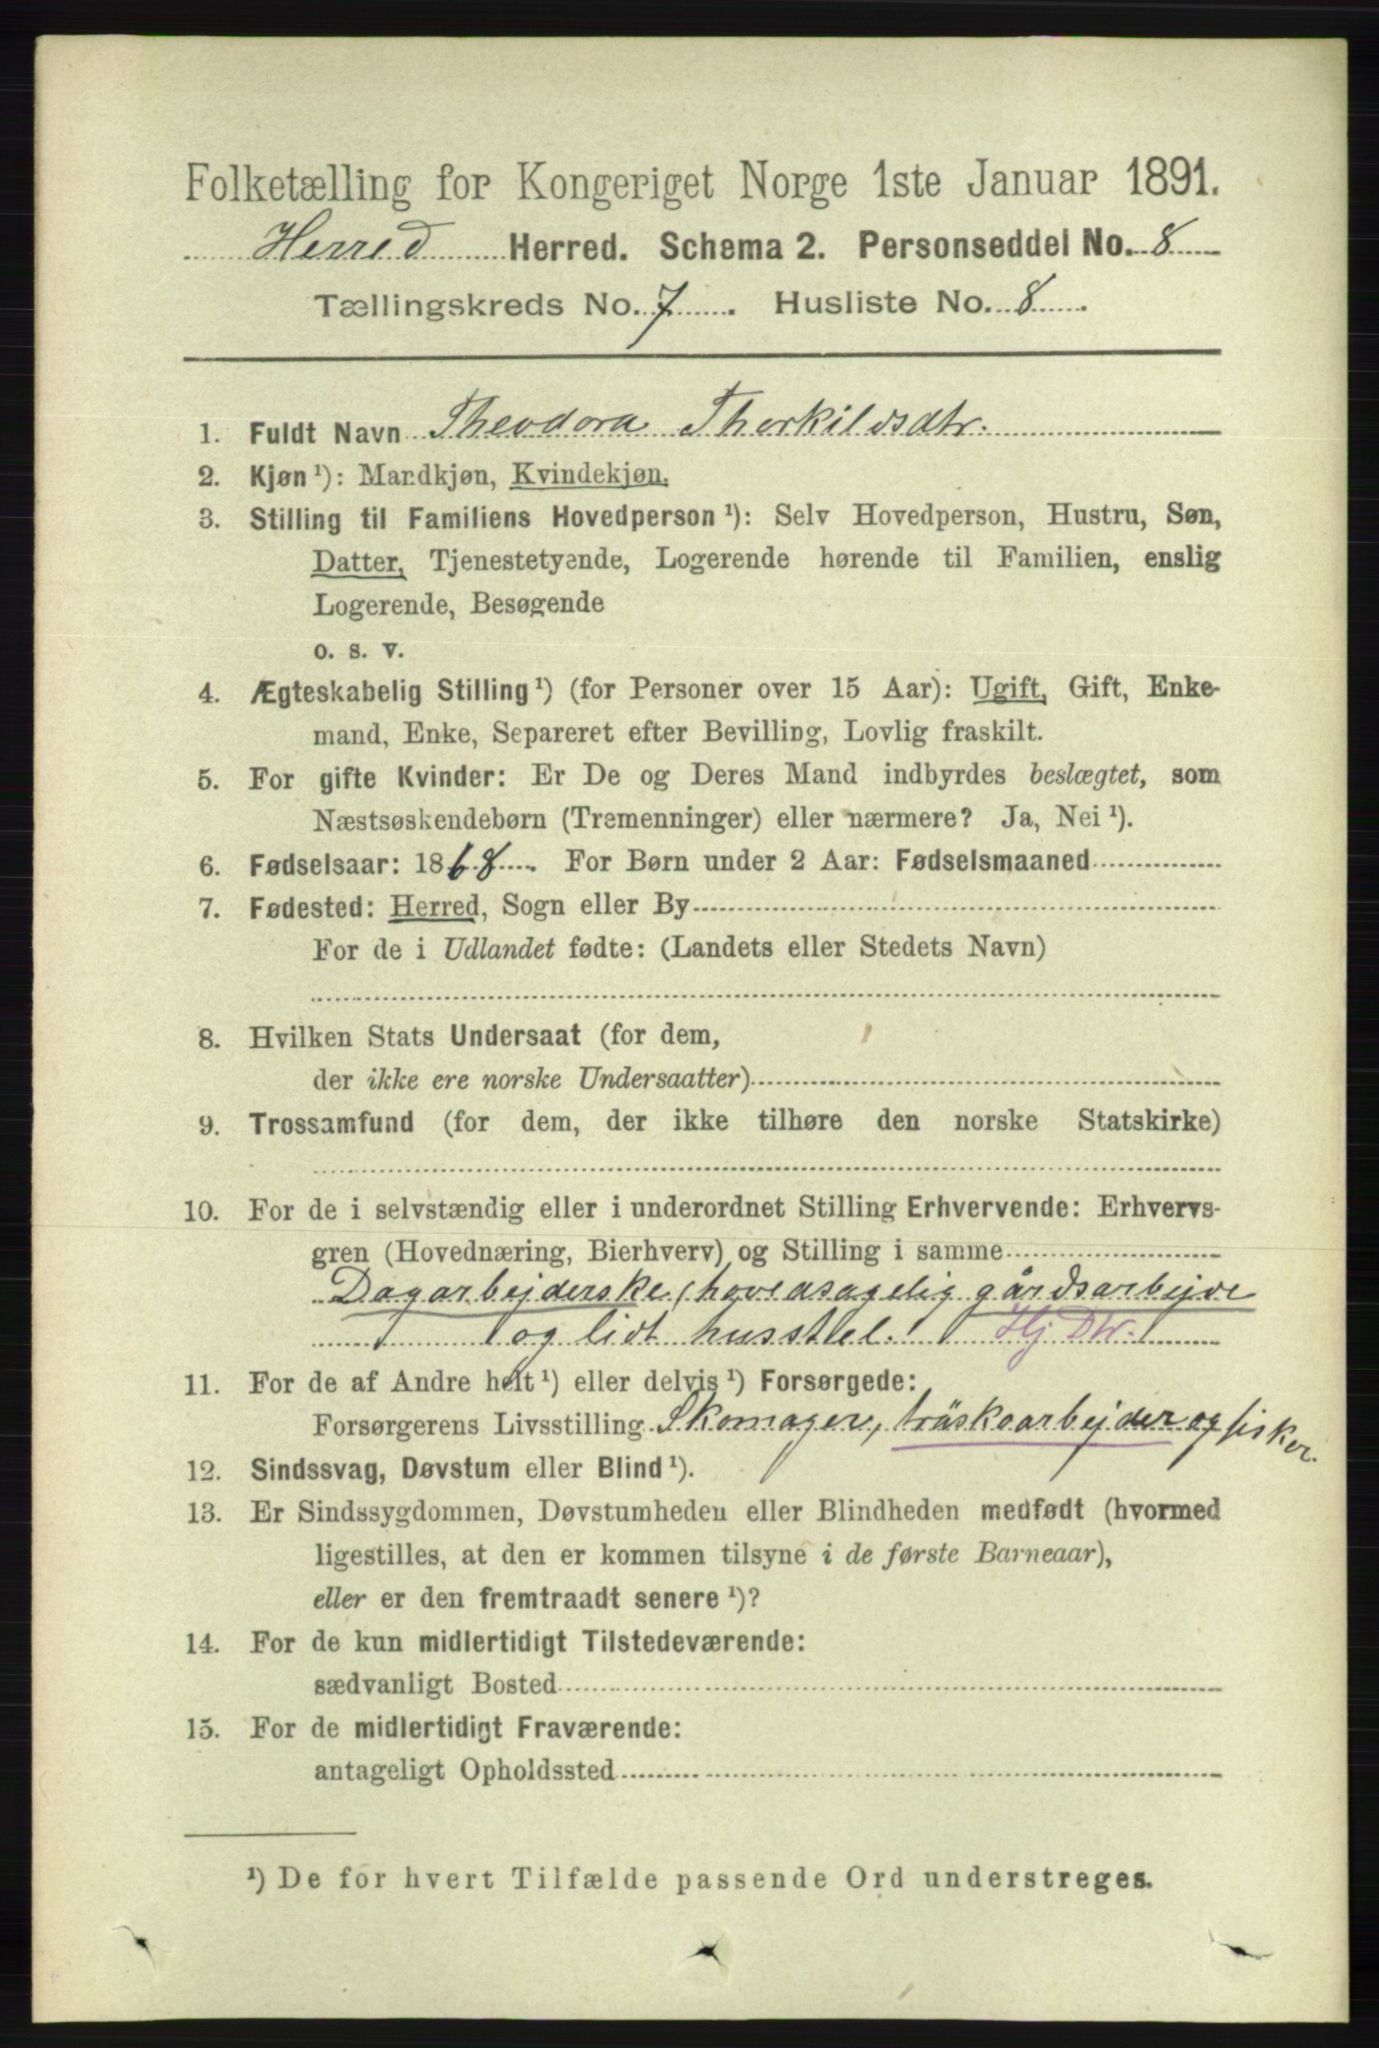 Folketælling for Kongeriget Norge 1ste Januar 1891.
Herred Herred. Schema 2. Personseddel No. 8
Tællingskreds No. 7. Husliste No. 8.
1. Fuldt Navn Theodora Thorkildsdtr.
2. Kjøn ¹): Mandkjøn, Kvindekjøn.
3. Stilling til Familiens Hovedperson ¹): Selv Hovedperson, Hustru, Søn,
Datter, Tjenestetyende, Logerende hørende til Familien, enslig
Logerende, Besøgende
o. s. v.
4. Ægteskabelig Stilling ¹) (for Personer over 15 Aar): Ugift, Gift, Enke-
mand, Enke, Separeret efter Bevilling, Lovlig fraskilt.
5. For gifte Kvinder: Er De og Deres Mand indbyrdes beslægtet, som
Næstsøskendebørn (Tremenninger) eller nærmere? Ja, Nei ¹).
6. Fødselsaar: 1868. For Børn under 2 Aar: Fødselsmaaned
7. Fødested: Herred, Sogn eller By
For de i Udlandet fødte: (Landets eller Stedets Navn)
8. Hvilken Stats Undersaat (for dem,
der ikke ere norske Undersaatter)
9. Trossamfund (for dem, der ikke tilhøre den norske Statskirke)
10. For de i selvstændig eller i underordnet Stilling Erhvervende: Erhvervs-
gren (Hovednæring, Bierhverv) og Stilling i samme
Dagarbejderske, hovedsagelig gårdsarbejde
og lidt husstel. Hj Dtr.
11. For de af Andre helt ¹) eller delvis ¹) Forsørgede:
Forsørgerens Livsstilling Skomager, träskoarbejder og fisker.
12. Sindssvag, Døvstum eller Blind ¹).
13. Er Sindssygdommen, Døvstumheden eller Blindheden medfødt (hvormed
ligestilles, at den er kommen tilsyne i de første Barneaar),
eller er den fremtraadt senere ¹)?
14. For de kun midlertidigt Tilstedeværende:
sædvanligt Bosted
15. For de midlertidigt Fraværende:
antageligt Opholdssted
¹) De for hvert Tilfælde passende Ord understreges.